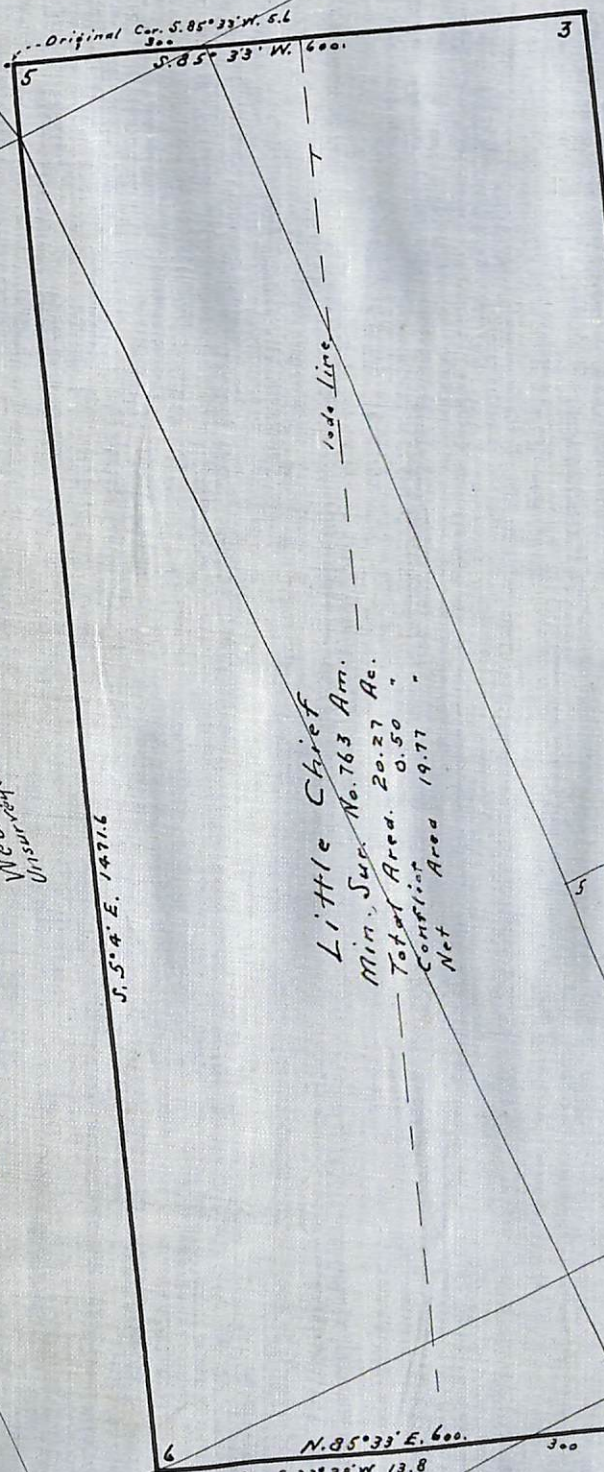 Original Cor. S.85°33'W. 5.6
300
S.85° 33' W. 600.
3
5
lode line
Unsurvey
S. 5°4' E. 1471.6
Little Chief
Min. Sur. No. 763 Am.
Total Area. 20.27 Ac.
Conflict 0.50 "
Net Area 19.77 "
5
6
N.85°33' E. 600.
300
W 13.8